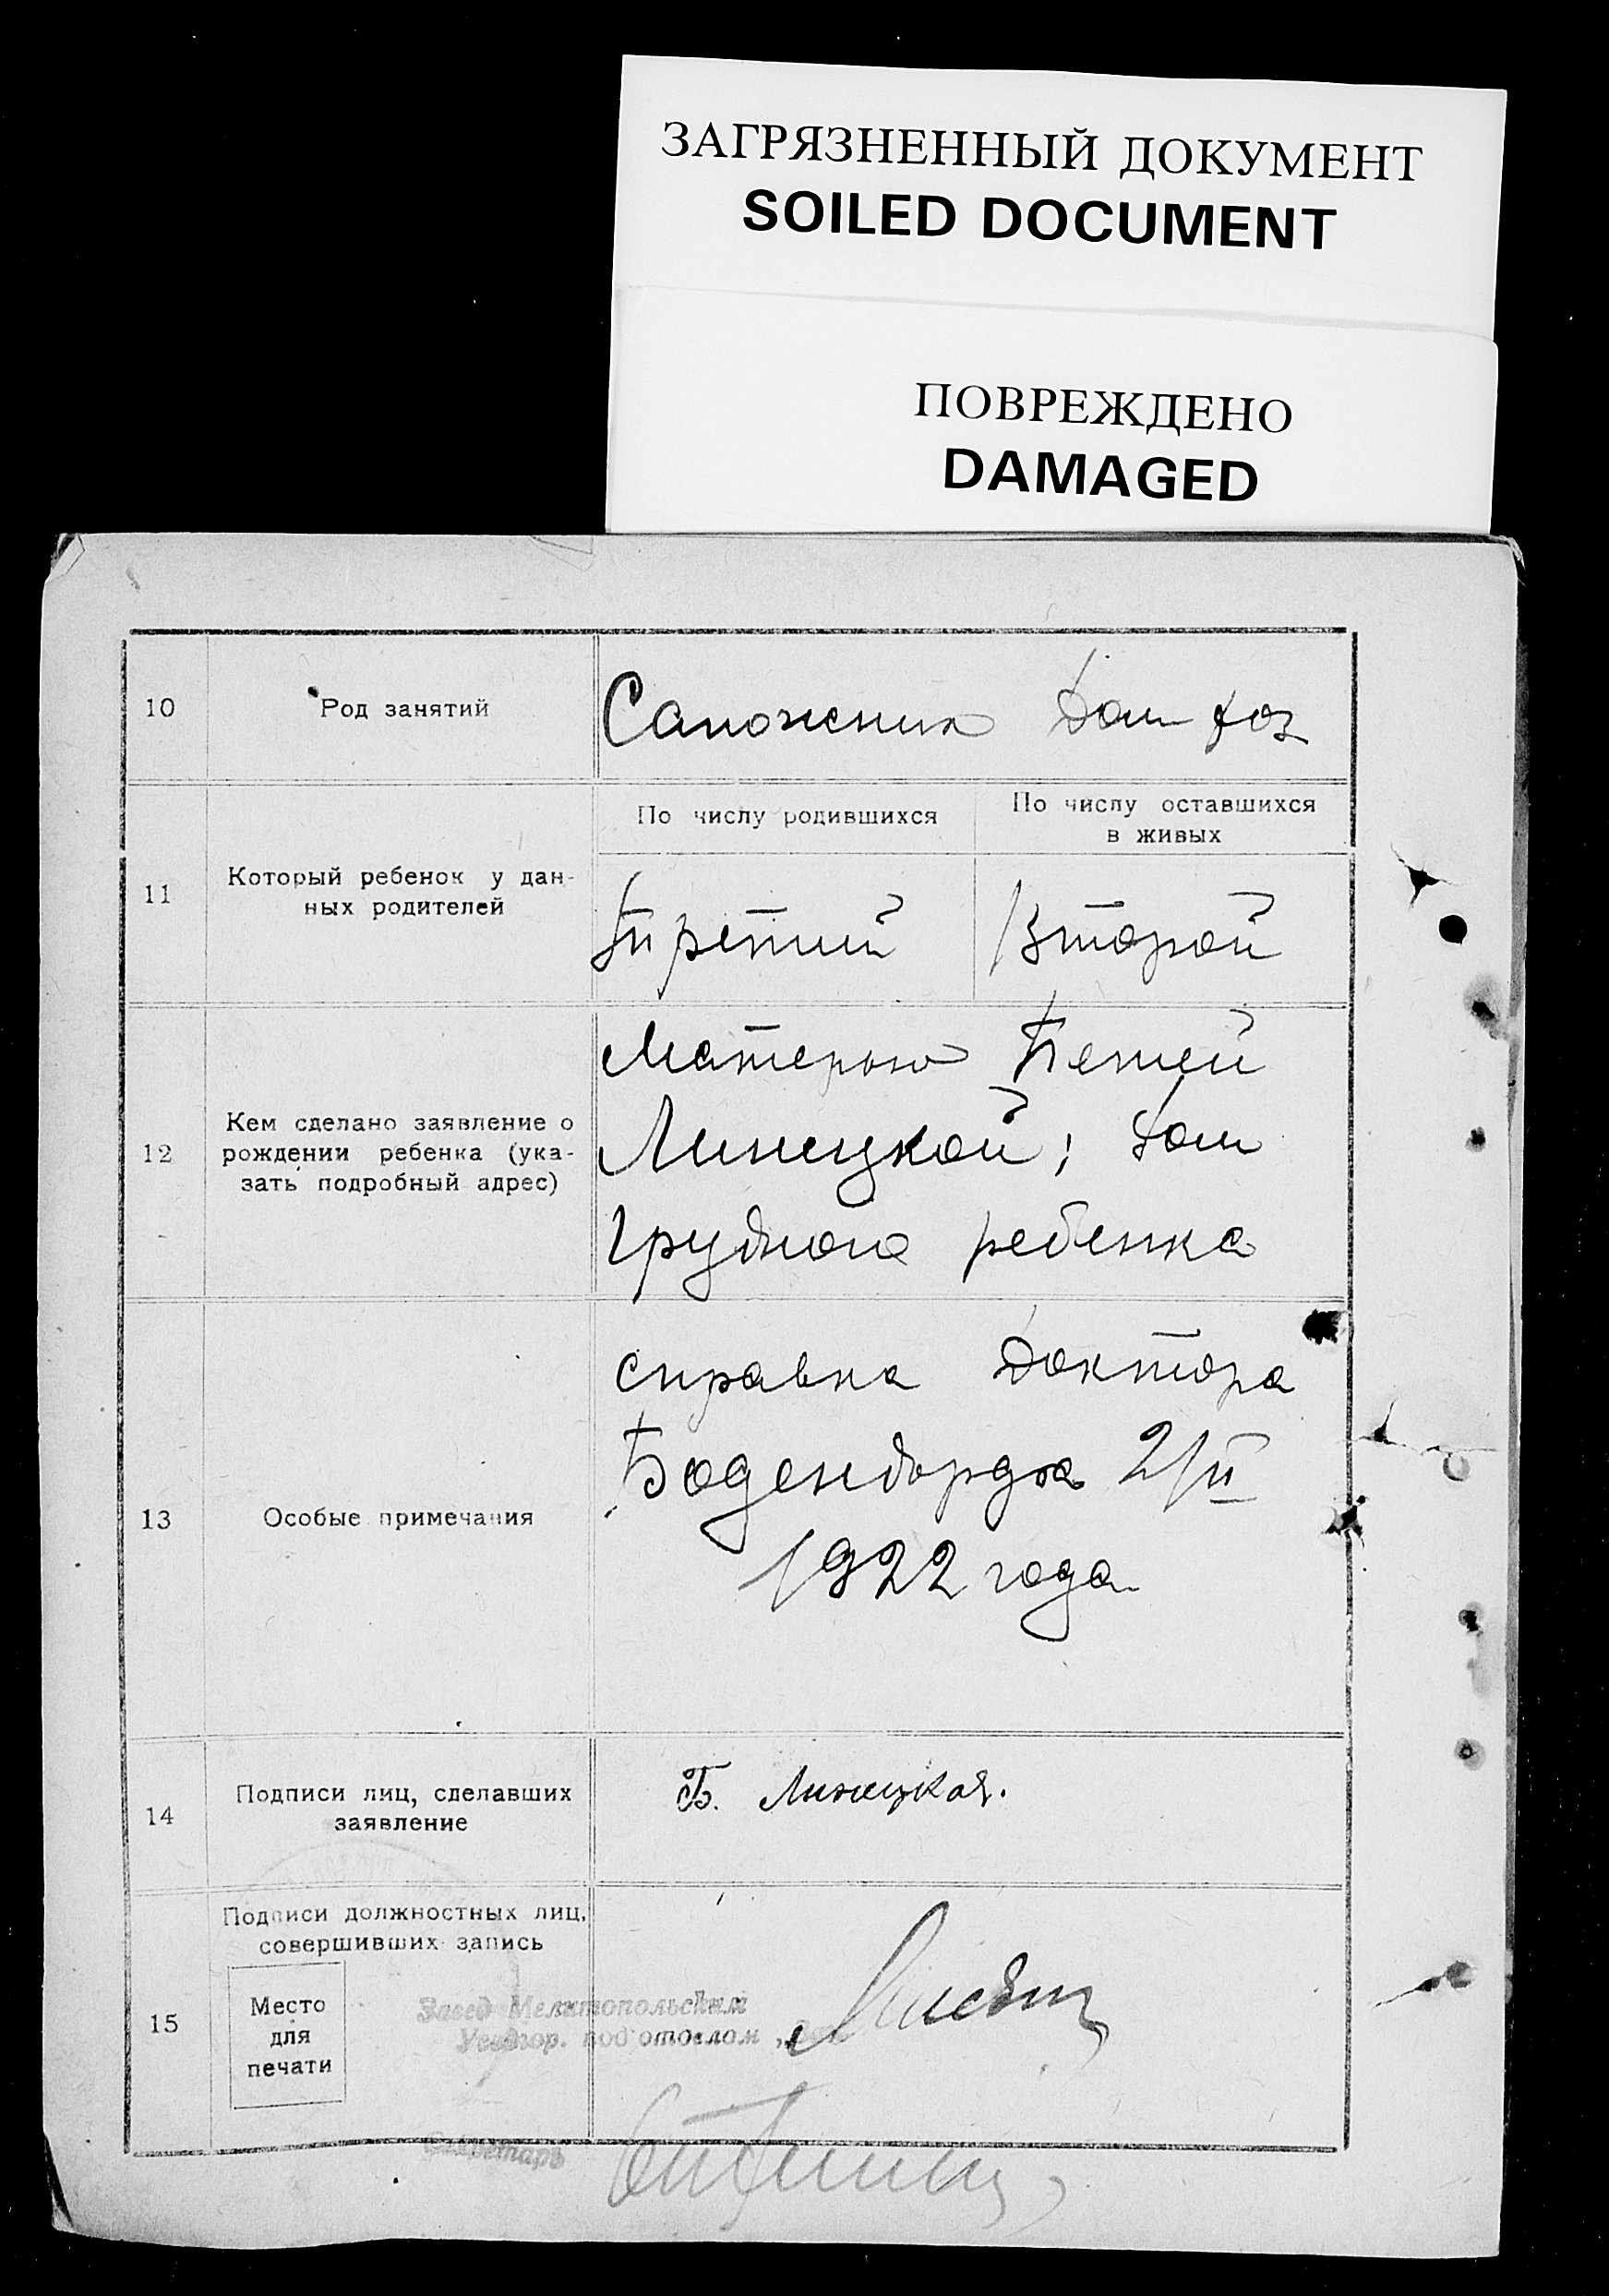 ЗАГРЯЗНЕННЫЙ ДОКУМЕНТ
SOILED DOCUMENT
ПОВРЕЖДЕНО
DAMAGED
10
Род занятий
Сапожник Дом хоз
11
Который ребенок у дан-
ных родителей
По числу родившихся
По числу оставшихся
в живых
Третий
Второй
12
Кем сделано заявление о
рождении ребенка (ука-
зать подробный адрес)
Матерью Бетей
Линецкой; Дом
Грудного ребенка
13
Особые примечания
справка доктора
2/II
1922 года
14
Подписи лиц, сделавших
заявление
Б. Линецкая.
15
Подписи должностных лиц,
совершивших запись
Место
для
печати
Завед Мелитопольским
подотделом
Секретарь